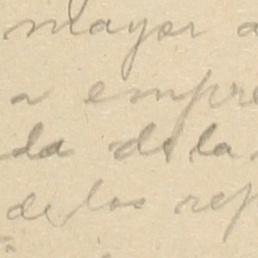 mayor a
a empre
da de la
de los rep